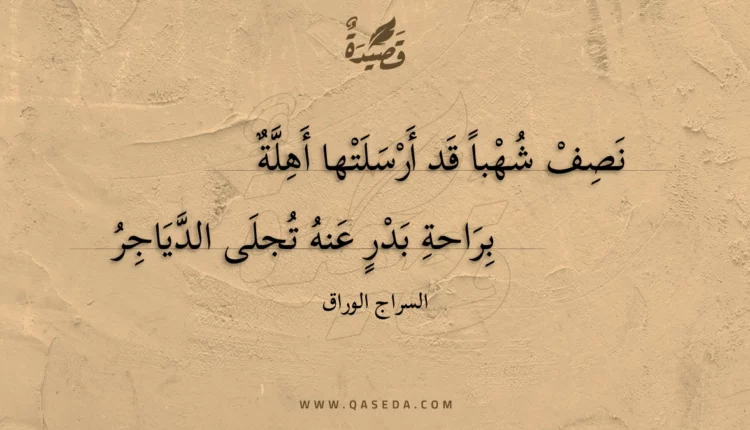 قَصِيْدَةٌ
نَصِفْ شُهْباً قَد أَرْسَلَتْها أَهِلَّةٌ
بِرَاحةِ بَدْرٍ عَنهُ تُجلَى الدَّيَاجِرُ
السراج الوراق
WWW.QASEDA.COM